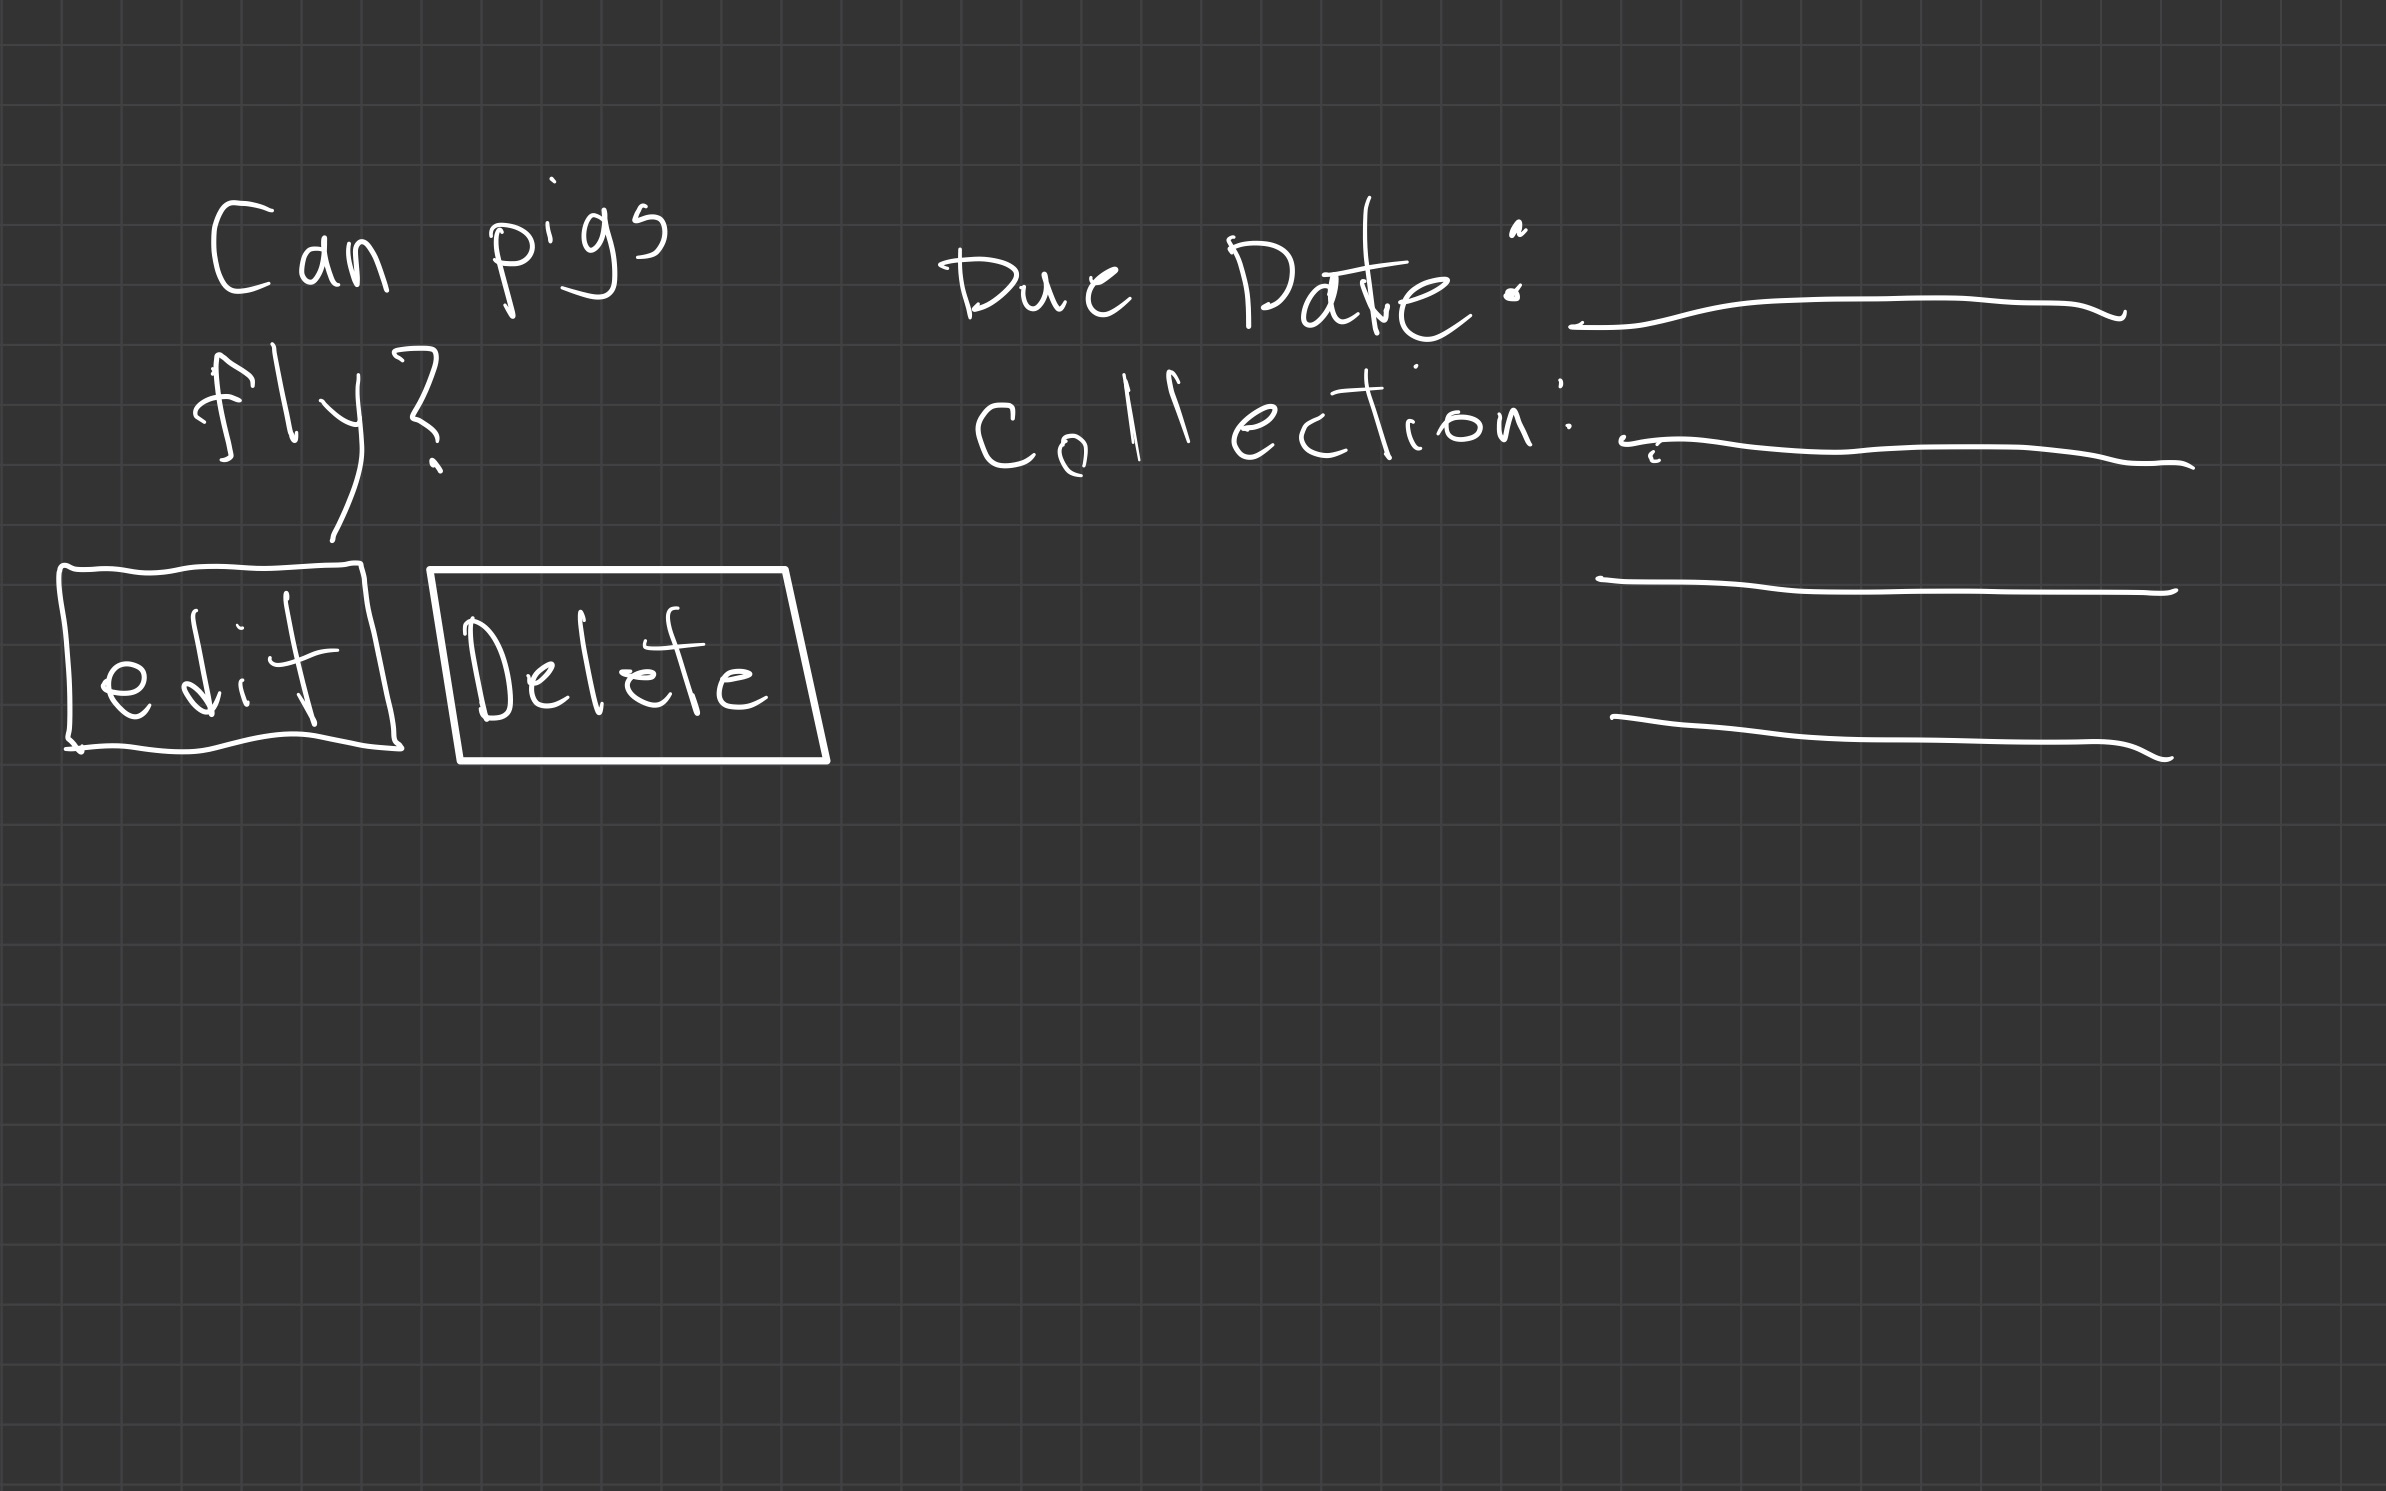 Can pigs
fly?
edit
Delete
Due Date:
Collection: